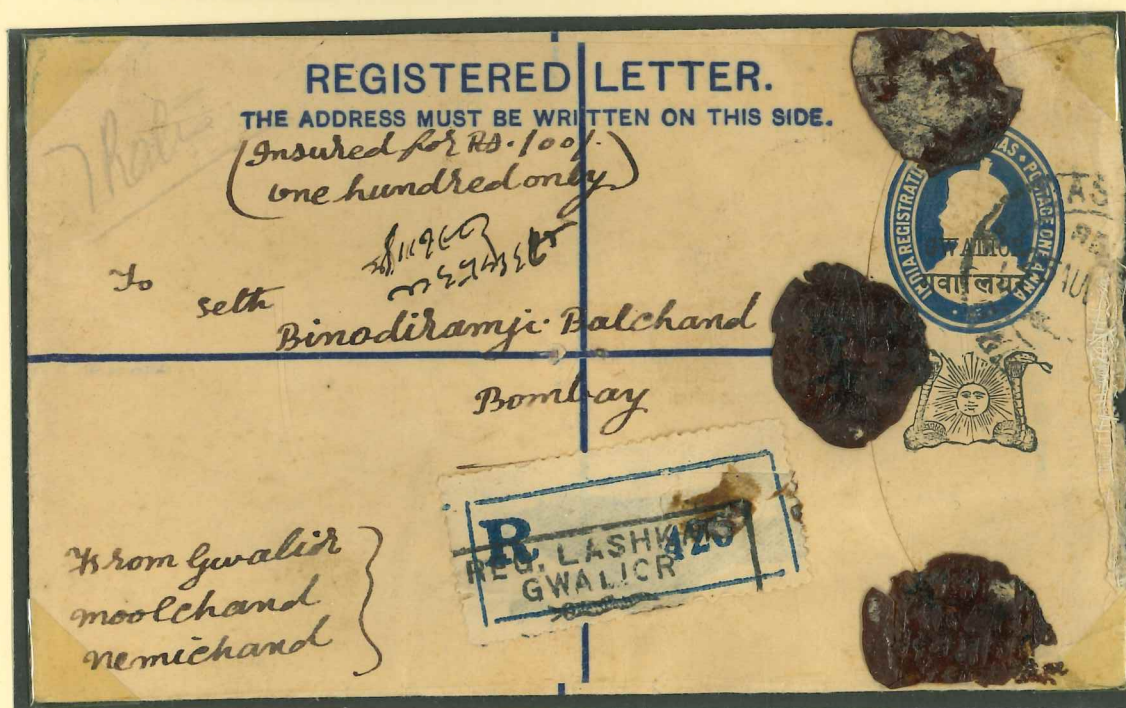 REGISTERED LETTER.
THE ADDRESS MUST BE WRITTEN ON THIS SIDE.
(Insured for Rs. 100/.
one hundred only)
To
Seth
Binodiramji Balchand
Bombay
INDIA REGISTRATION POSTAGE ONE ANNA
GWALIOR
गवालियर
R
REG. LASHKAR
GWALIOR
From Gwalior
Moolchand
Nemichand